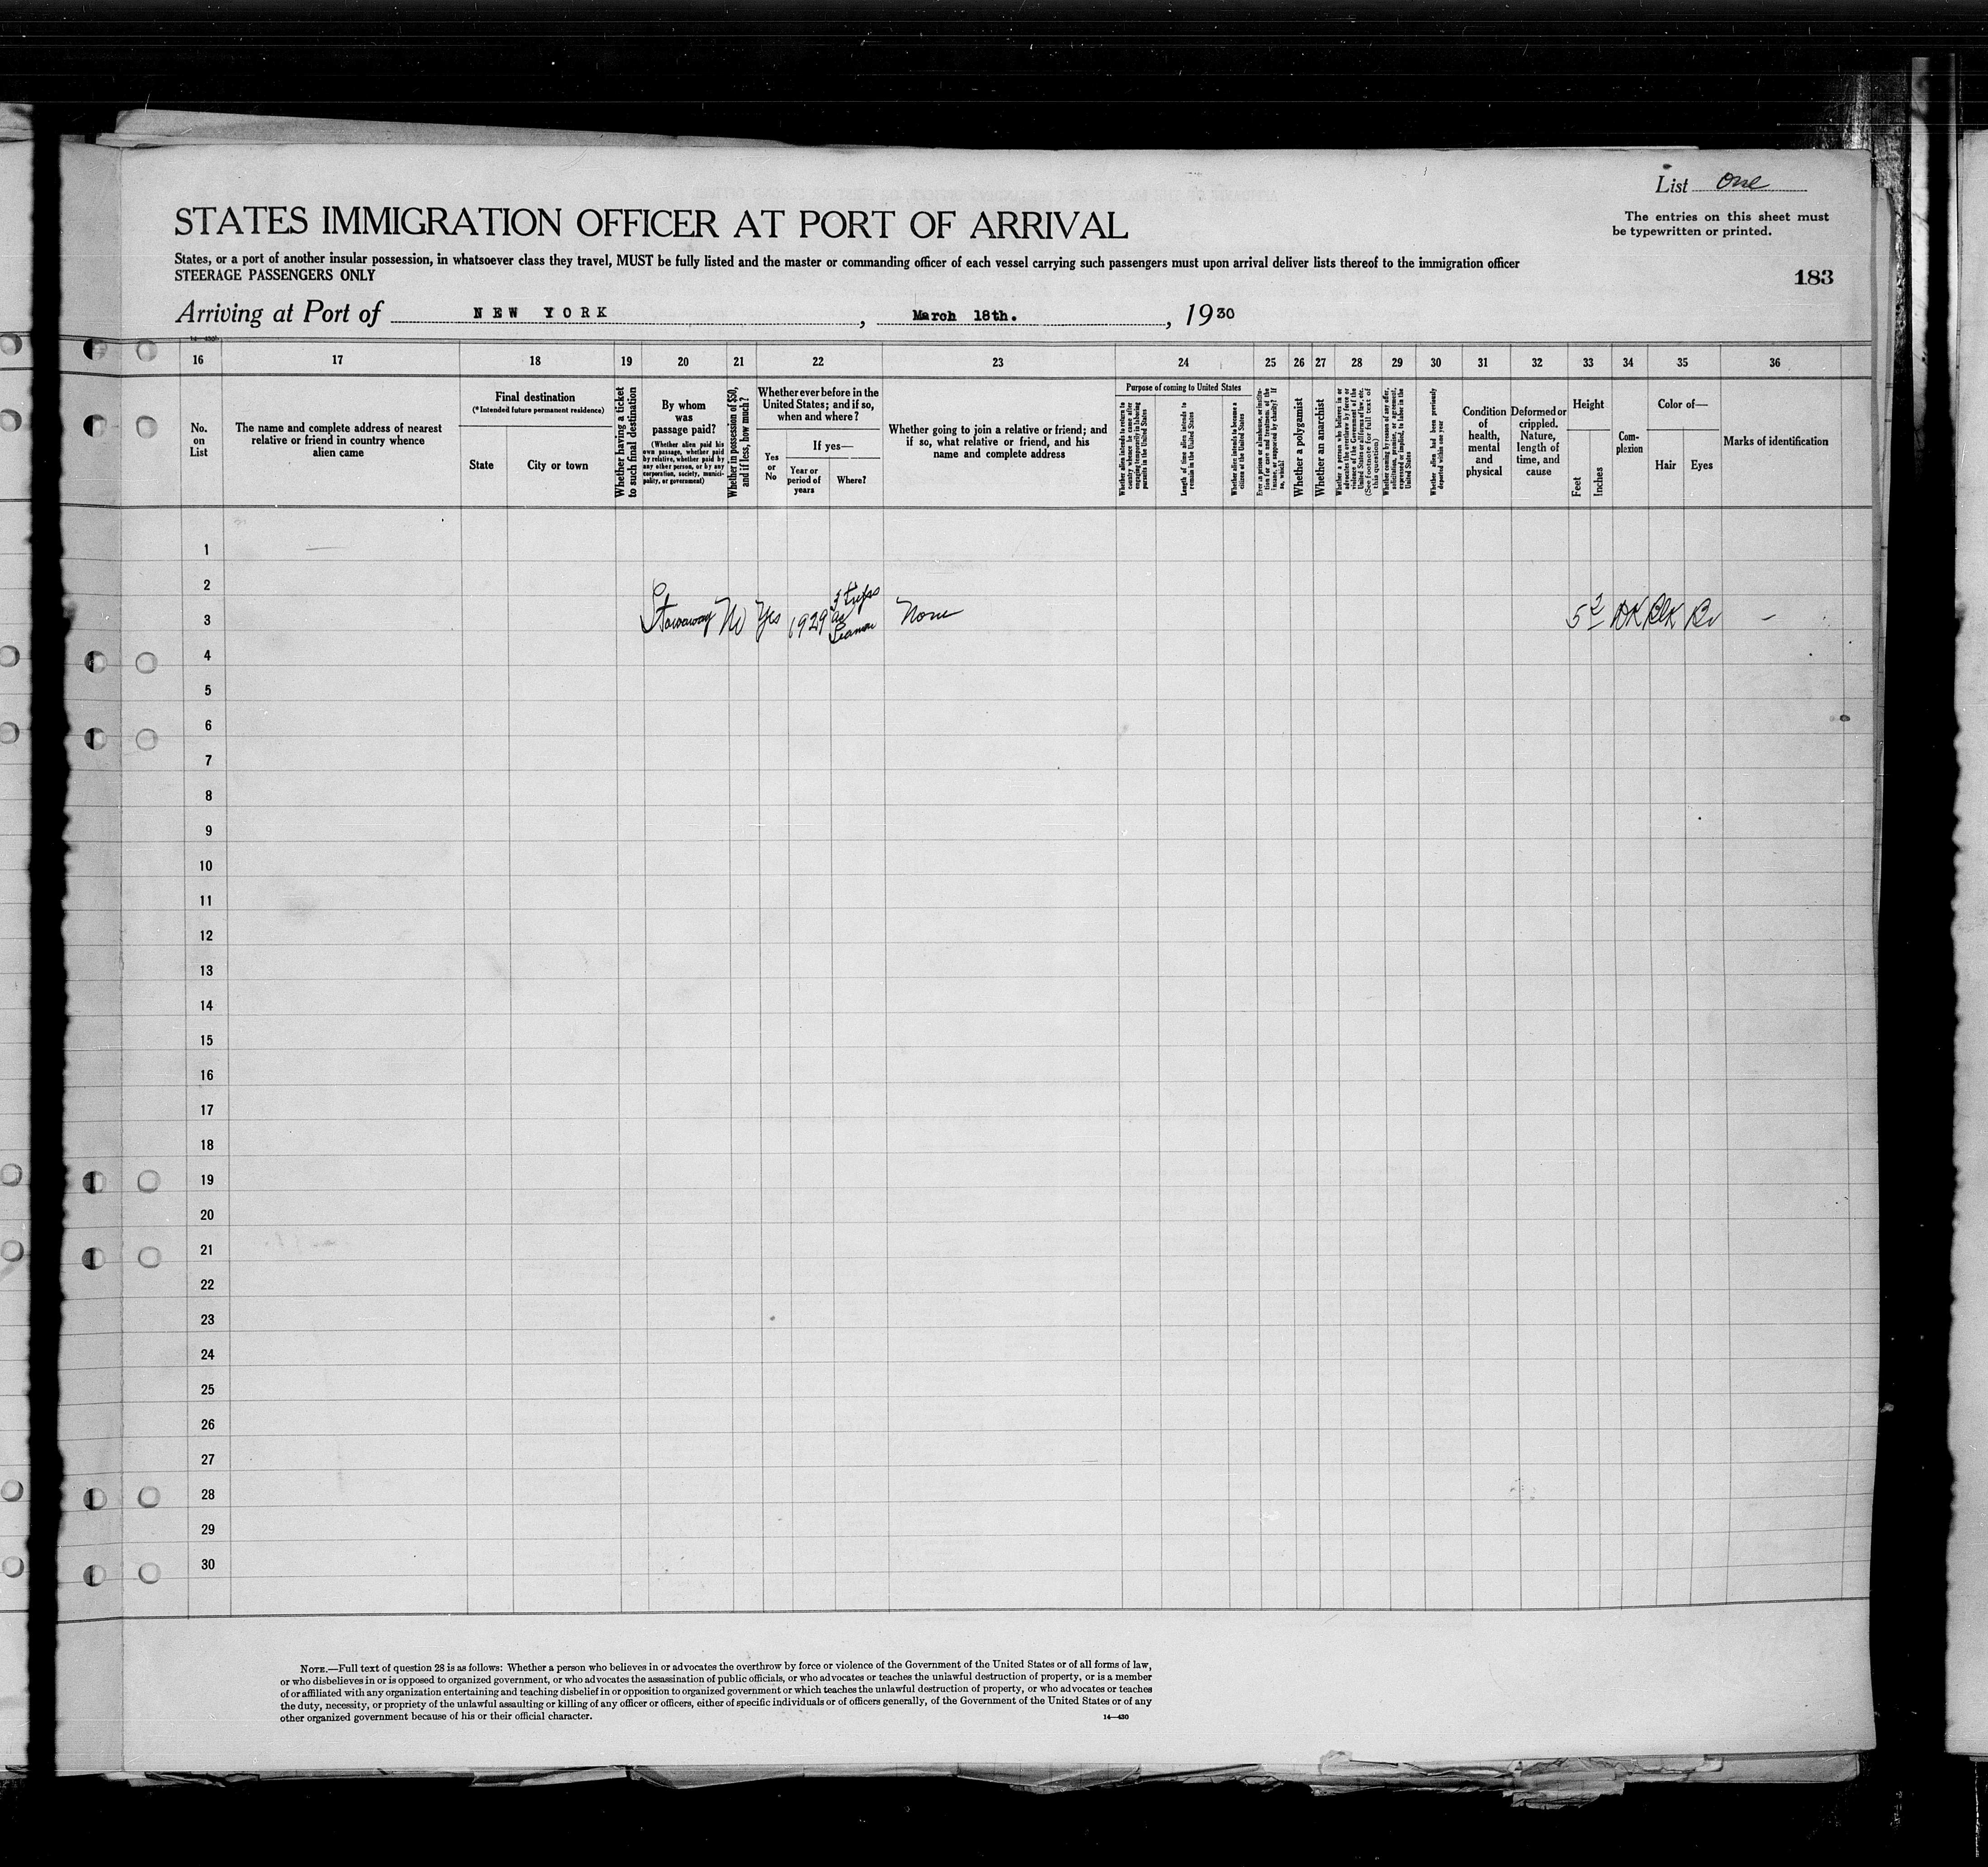 List One
The entries on this sheet must
be typewritten or printed.
STATES IMMIGRATION OFFICER AT PORT OF ARRIVAL
States, or a port of another insular possession, in whatsoever class they travel, MUST be fully listed and the master or commanding officer of each vessel carrying such passengers must upon arrival deliver lists thereof to the immigration officer
STEERAGE PASSENGERS ONLY
183
Arriving at Port of NEW YORK, March 18th., 1930
16 17 18 19 20 21 22 23 24 25 26 27 28 29 30 31 32 33 34 35 36
No.
on
List
The name and complete address of nearest
relative or friend in country whence
alien came
Final destination
(*Intended future permanent residence)
State
City or town
Whether having a ticket
to such final destination
By whom
was
passage paid?
(Whether alien paid his
own passage, whether paid
by relative, whether paid by
any other person, or by any
corporation, society, munici-
pality, or government)
Whether in possession of $50,
and if less, how much?
Whether ever before in the
United States; and if so,
when and where?
Yes
or
No
If yes—
Year or
period of
years
Where?
Whether going to join a relative or friend; and
if so, what relative or friend, and his
name and complete address
Purpose of coming to United States
Whether alien intends to return to
country whence he came after
engaging temporarily in laboring
pursuits in the United States
Length of time alien intends to
remain in the United States
Whether alien intends to become a
citizen of the United States
Ever in prison or almshouse, or institu-
tion for care and treatment of the
insane, or supported by charity? If
so, which?
Whether a polygamist
Whether an anarchist
Whether a person who believes in or
advocates the overthrow by force or
violence of the Government of the
United States or all forms of law, etc.
(See footnote for full text of
this question)
Whether coming by reason of any offer,
solicitation, promise, or agreement,
expressed or implied, to labor in the
United States
Whether alien had been previously
deported within one year
Condition
of
health,
mental
and
physical
Deformed or
crippled.
Nature,
length of
time, and
cause
Height
Feet
Inches
Com-
plexion
Color of—
Hair
Eyes
Marks of identification
1
2
3 Stowaway No Yes 1929 3 trips as Seaman None 5 2 DK Blk Br —
4
5
6
7
8
9
10
11
12
13
14
15
16
17
18
19
20
21
22
23
24
25
26
27
28
29
30
NOTE.—Full text of question 28 is as follows: Whether a person who believes in or advocates the overthrow by force or violence of the Government of the United States or of all forms of law,
or who disbelieves in or is opposed to organized government, or who advocates the assassination of public officials, or who advocates or teaches the unlawful destruction of property, or is a member
of or affiliated with any organization entertaining and teaching disbelief in or opposition to organized government or which teaches the unlawful destruction of property, or who advocates or teaches
the duty, necessity, or propriety of the unlawful assaulting or killing of any officer or officers, either of specific individuals or of officers generally, of the Government of the United States or of any
other organized government because of his or their official character.
14—430